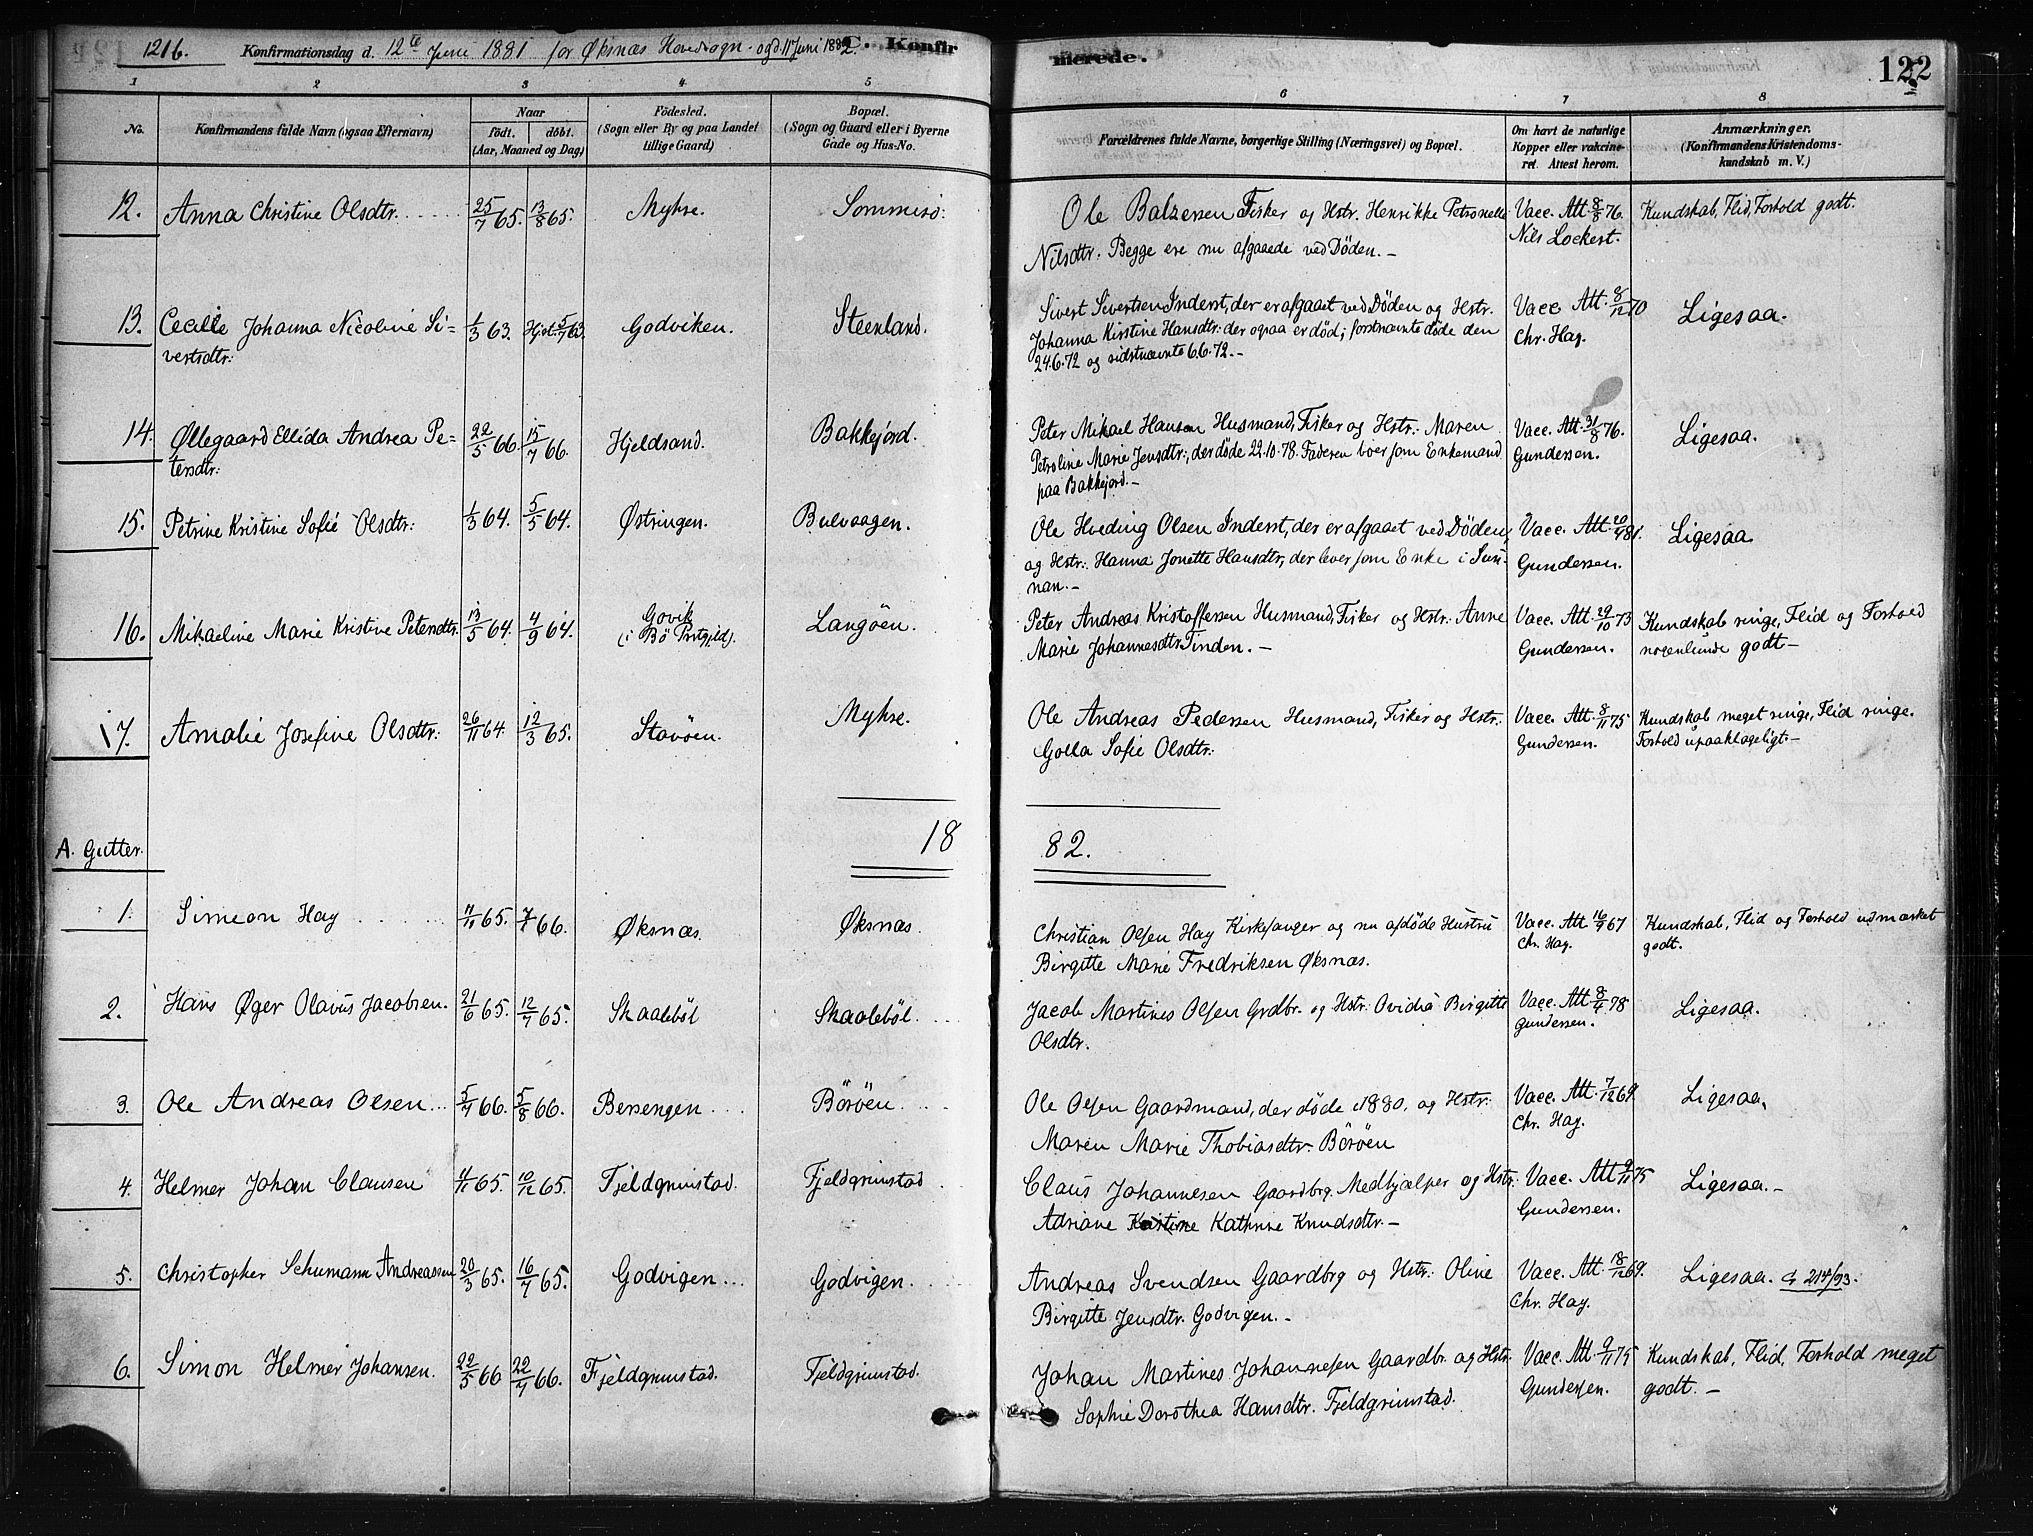 1216. Konfirmationsdag d. 12te Juni 1881 for Øksnæs Hovedsogn - og d. 11 Juni 1882. C. Konfir
merede. 122
1 2 3 4 5 6 7 8
No. Konfirmandens fulde Navn (ogsaa Efternavn) Naar født. døbt. (Aar, Maaned og Dag) Fødested. (Sogn eller By og paa Landet tillige Gaard) Bopæl. (Sogn og Gaard eller i Byerne Gade og Hus-No.
Forældrenes fulde Navne, borgerlige Stilling (Næringsvei) og Bopæl. Om havt de naturlige Kopper eller vakcineret. Attest herom. Anmærkninger. (Konfirmandens Kristendomskundskab m. V.)
12. Anna Christine Olsdtr. 25/7 65. 13/8 65. Myhre. Sommerö. Ole Balzersen Fisker og Hstr. Henrikke Petronelle Vacc. Att. 8/8 76. Kundskab, Flid, Forhold godt.
Nilsdtr. Begge ere nu afgaaede ved Døden. - Nils Lockert.
13. Cecilie Johanna Nicoline Si- 1/3 63. Hjd. 5/7 63. Godviken. Steenland. Sivert Sivertsen Inderst, der er afgaaet ved Døden og Hstr. Vacc Att. 8/12 70 Ligesaa.
vertsdtr: Johanna Kirstine Hansdtr: der ogsaa er død; förstnævnte døde den Chr. Hag.
24.6.72 og sidstnævnte 6.6.72. -
14. Øllegaard Ellida Andrea Pe- 22/5 66. 15/7 66. Hjeldsand. Bakkejord. Peter Mikael Hansen Husmand, Fisker og Hstr: Maren Vacc. Att. 31/8 76. Ligesaa.
tersdtr: Petroline Marie Jensdtr:, der døde 22.10.78. Faderen boer som Enkemand Gundersen.
paa Bakkejord. -
15. Petrine Kristine Sofie Olsdtr: 1/3 64. 5/5 64. Østringen. Bulvaagen. Ole Hveding Olsen Inderst, der er afgaaet ved Døden, Vacc. Att. 20/4 81. Ligesaa
og Hstr: Hanna Jonette Hansdtr, der lever som Enke i Sun- Gundersen.
nan. -
16. Mikaeline Marie Kristine Petersdtr. 13/5 64. 4/9 64. Govik (i Bö Prstgjeld). Langöen. Peter Andreas Kristoffersen Husmand, Fisker og Hstr: Anne Vacc. Att. 29/10 73 Kundskab ringe, Flid og Forhold
Marie Johannesdtr. Tinden. - Gundersen. nogenlunde godt -
17. Amalie Josefine Olsdtr: 26/11 64. 12/3 65. Stavöen. Myhre. Ole Andreas Pedersen Husmand, Fisker og Hstr: Vacc. Att. 8/11 75 Kundskab meget ringe, Flid ringe.
Golla Sofie Olsdtr: Gundersen. Forhold upaaklageligt -
18 82.
A. Gutter.
1. Simeon Hag 11/11 65. 66. Øksnæs. Øksnæs. Christian Olsen Hag Kirkesanger og nu afdøde Hustru Vacc. Att. 16/9 67 Kundskab, Flid og Forhold udmærket
Birgitte Marie Fredriksen Øksnæs. Chr. Hag. godt.
2. Hans Øger Olavus Jacobsen. 21/6 65. 12/7 65. Skaaleböl Skaaleböl. Jacob Martines Olsen Grdbr. og Hstr. Ovidia Birgitte Vacc. Att. 8/4 78 Ligesaa.
Olsdtr. Gundersen.
3. Ole Andreas Olsen... 5/4 66. 5/8 66. Bersengen Böröen. Ole Olsen Gaardmand, der døde i 1880. og Hstr: Vacc. Att. 7/12 69. Ligesaa.
Maren Marie Thobiasdtr. Böröen Chr. Hag.
4. Helmer Johan Clausen 4/11 65. 10/12 65. Fjeldgrimstad. Fjeldgrimstad Claus Johannesen Gaardbrg. Medhjælper og Hstr: Vacc. Att 9/11 75 Ligesaa. -
Adriane Kathrine Knudsdtr. - Gundersen.
5. Christopher Schumann Andreassen 20/3 65. 16/7 65. Godvigen... Godvigen. Andreas Svendsen Gaardbrg og Hstr: Oline Vacc. Att. 18/12 69. Ligesaa. 21 4/93.
Birgitte Jensdtr. Godvigen. - Chr. Hag.
6. Simon Helmer Johansen. 22/5 66 22/7 66. Fjeldgrimstad. Fjeldgrimstad. Johan Martines Johannesen Gaardbr. og Hstr: Vacc. Att 9/11 75 Kundskab, Flid, Forhold meget
Sophie Dorothea Hansdtr. Fjeldgrimstad. Gundersen. godt. -